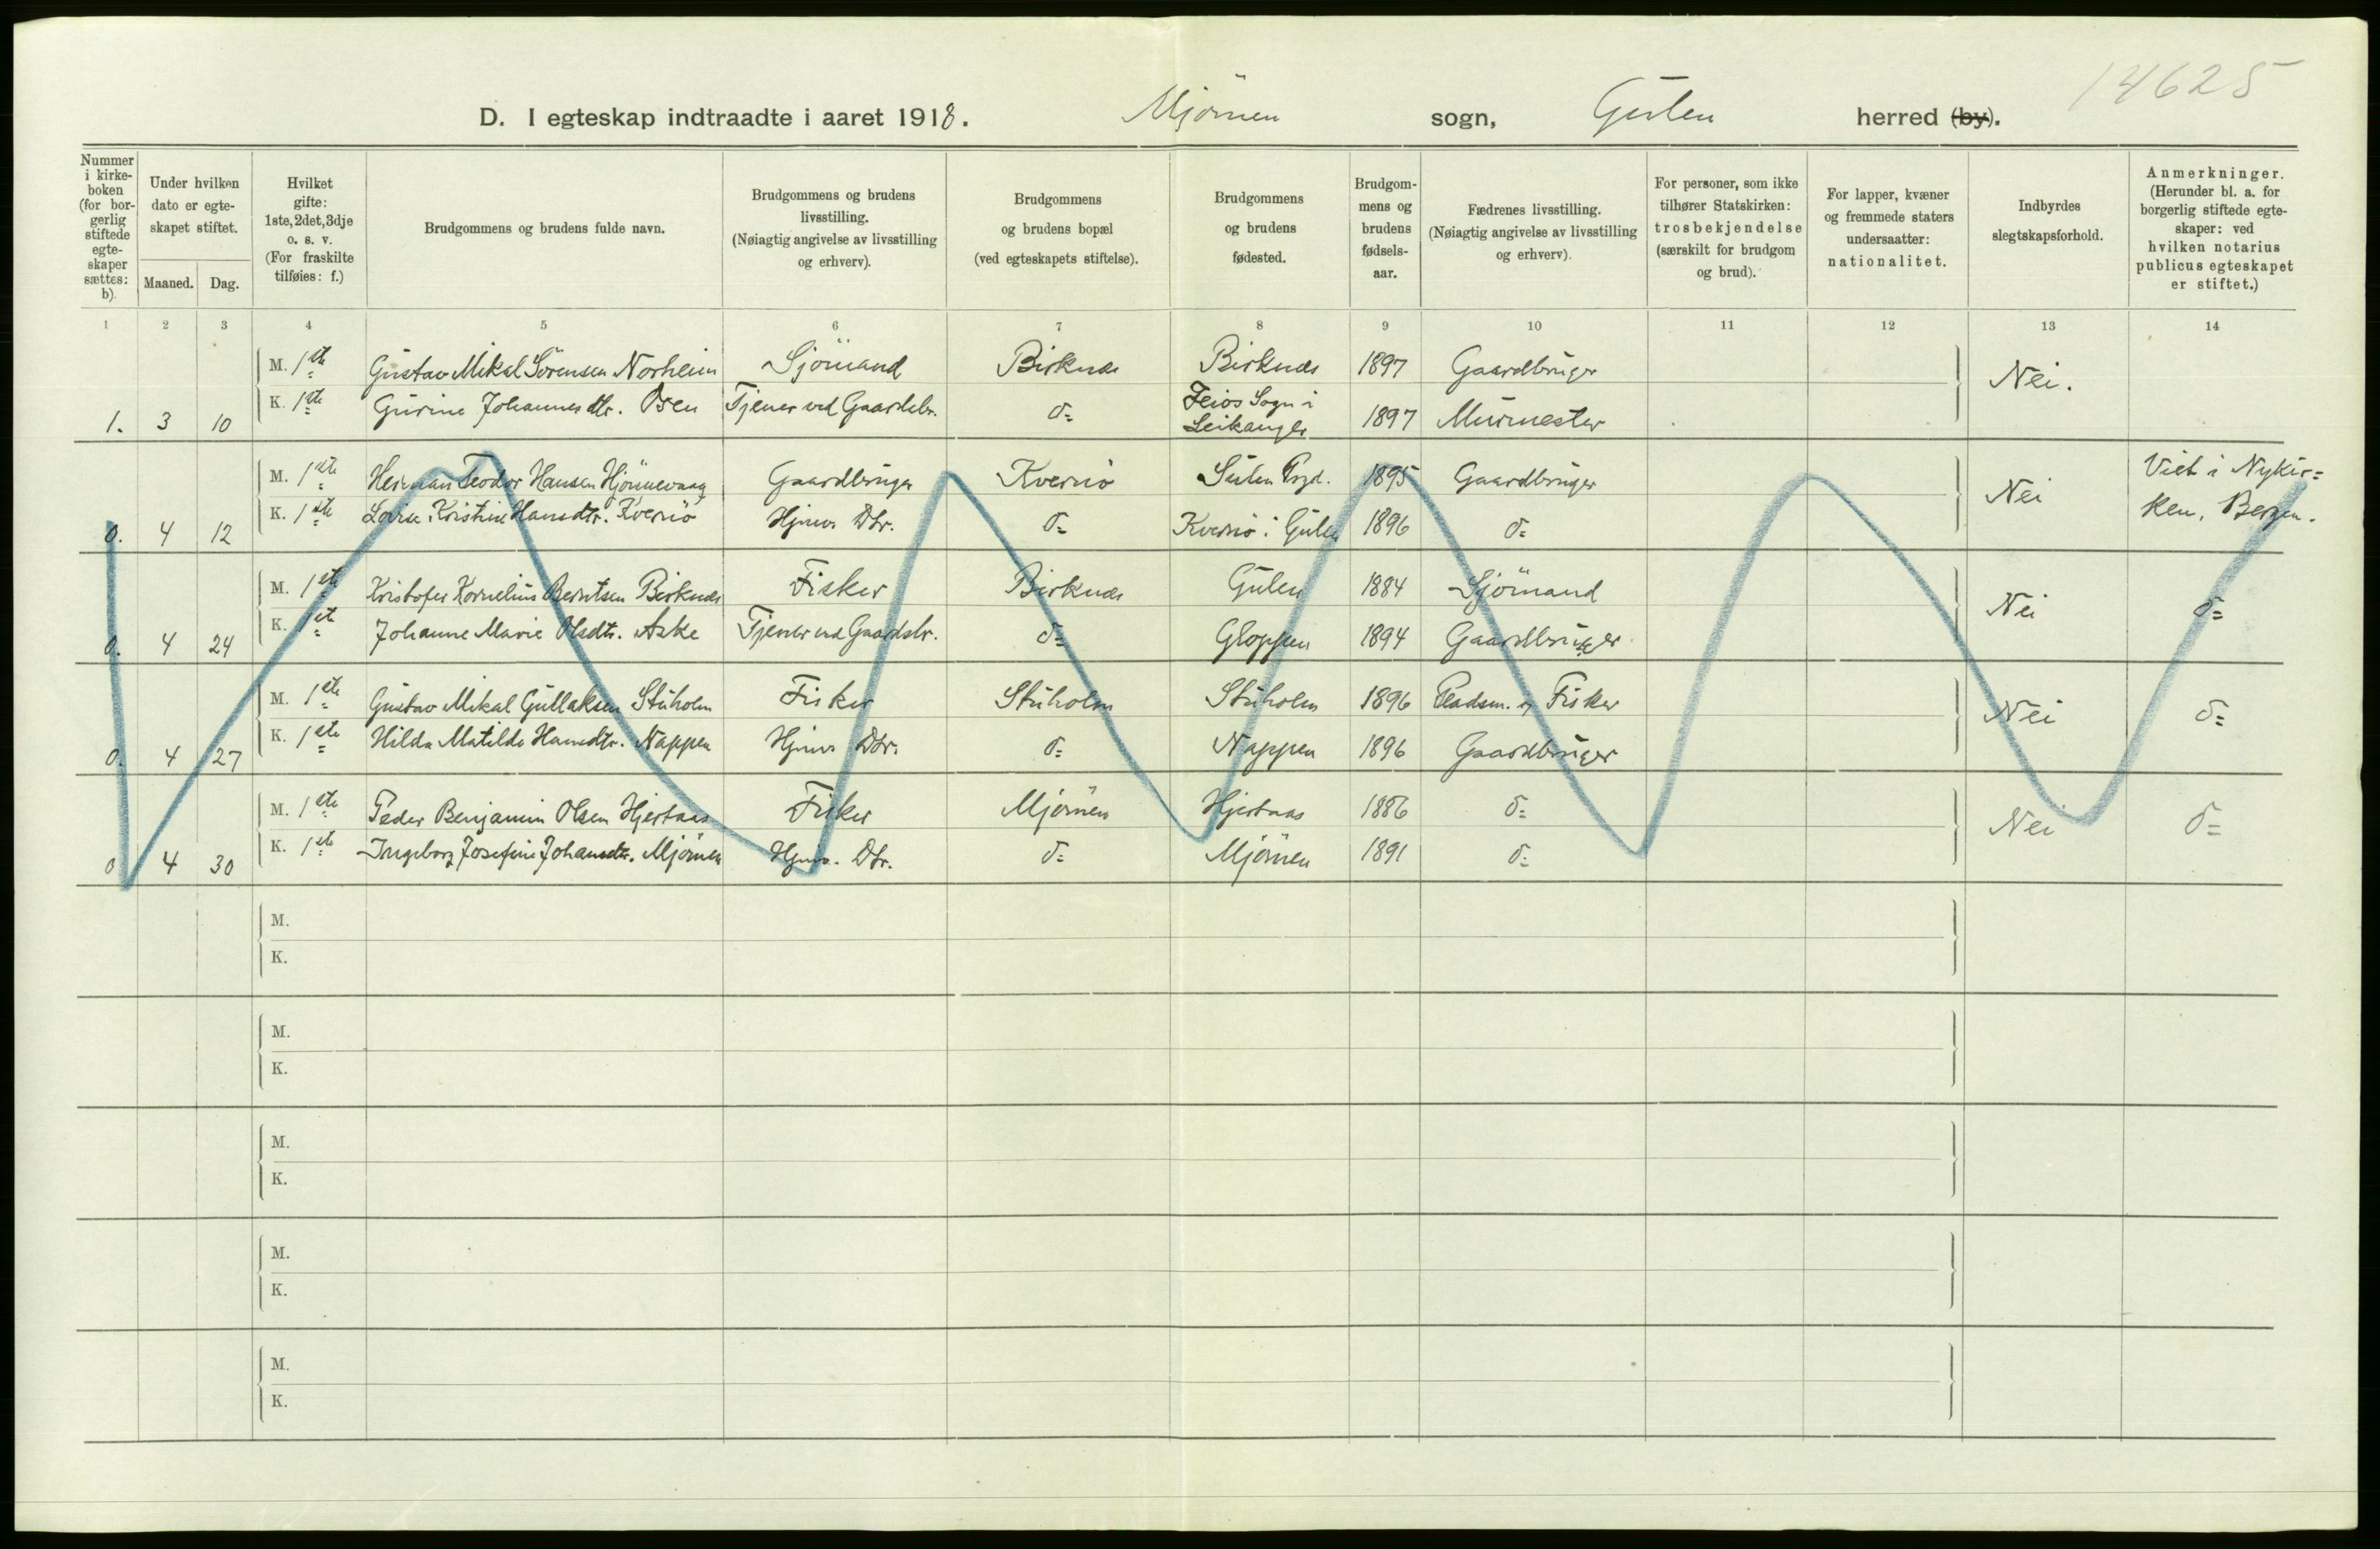 14625
D. I egteskap indtraadte i aaret 1918. Mjömen sogn, Gulen herred (by).
Nummer i kirkeboken (for borgerlig stiftede egteskaper sættes: b).
Under hvilken dato er egteskapet stiftet.
Maaned. Dag.
Hvilket gifte: 1ste, 2det, 3dje o. s. v. (For fraskilte tilføies: f.)
Brudgommens og brudens fulde navn.
Brudgommens og brudens livsstilling. (Nøiagtig angivelse av livsstilling og erhverv).
Brudgommens og brudens bopæl (ved egteskapets stiftelse).
Brudgommens og brudens fødested.
Brudgommens og brudens fødselsaar.
Fædrenes livsstilling. (Nøiagtig angivelse av livsstilling og erhverv).
For personer, som ikke tilhører Statskirken: trosbekjendelse (særskilt for brudgom og brud).
For lapper, kvæner og fremmede staters undersaatter: nationalitet.
Indbyrdes slegtskapsforhold.
Anmerkninger. (Herunder bl. a. for borgerlig stiftede egteskaper: ved hvilken notarius publicus egteskapet er stiftet.)
1 2 3 4 5 6 7 8 9 10 11 12 13 14
M. 1ste Gustav Mikal Sörensen Norheim Sjömand Birknes Birknes 1897 Gaardbruger Nei.
1. 3 10 K. 1ste Gurine Johannesdtr. Osen Tjener ved Gaardsbr. do Feios Sogn i Leikanger 1897 Murmester
M. 1ste Herman Teodor Hansen Hjönnevaag Gaardbruger Kvernö Sulen Prgd. 1895 Gaardbruger Nei Viet i Nykir=
0. 4 12 K. 1ste Lovise Kristine Hansdtr. Kvernö Hjmv. Dtr. do Kvernö i Gulen 1896 do ken, Bergen.
M. 1ste Kristofer Kornelius Berntsen Birknes Fisker Birknes Gulen 1884 Sjömand Nei do
0. 4 24 K. 1ste Johanne Marie Olsdtr. Aske Tjener ved Gaardsbr. do Gloppen 1894 Gaardbruger
M. 1ste Gustav Mikal Gullaksen Stuholm Fisker Stuholm Stuholm 1896 Pladsm. og Fisker Nei do
0. 4 27 K. 1ste Hilda Matilde Hansdtr. Nappen Hjmv. Dtr. do Nappen 1896 Gaardbruger
M. 1ste Peder Benjamin Olsen Hjertaas Fisker Mjömen Hjertaas 1886 do Nei do
0 4 30 K. 1ste Ingeborg Josefine Johansdtr. Mjömen Hjmv. Dtr. do Mjömen 1891 do
M.
K.
M.
K.
M.
K.
M.
K.
M.
K.